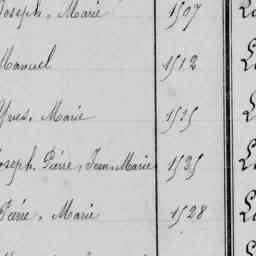 Joseph, Marie 1507
Manuel 1512
Yves, Marie 1515
Joseph, Pierre, Jean-Marie 1525
Pierre, Marie 1528